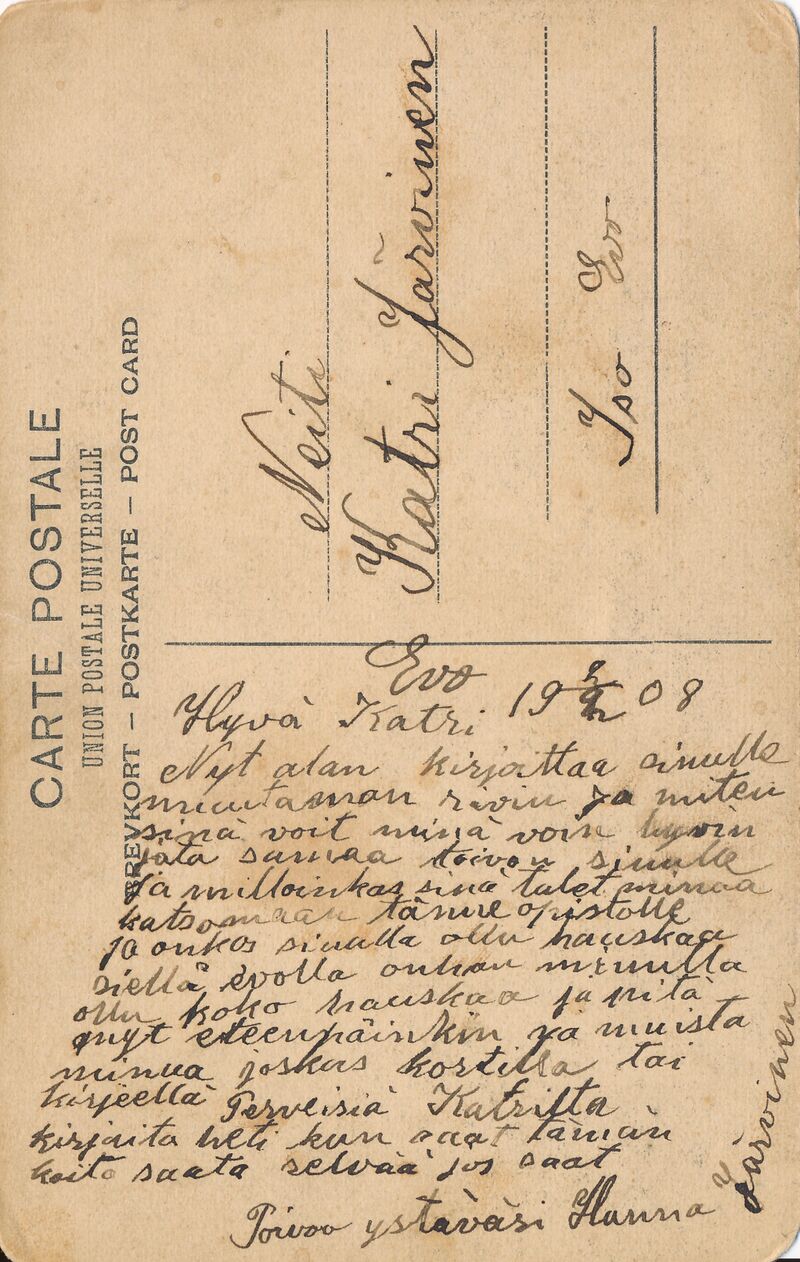 CARTE POSTALE
UNION POSTALE UNIVERSELLE
BREVKORT – POSTKARTE – POST CARD
Neiti
Katri Järvinen
Iso Evo
Evo
Hyvä Katri 19 08
Nyt alan kirjottaa sinulle
muutaman rivin ja miten
sinä voit minä voin hyvin
jota samaa toivon sinulle
ja milloinkas sinä tulet minua
katsomaan tänne opistolle
ja onkos sinulla ollu hauskaa
siellä evolla onhan minulla
ollu koko hauskaa ja pitä
nyt eteenpäinkin ja muista
minua joskus kortilla tai
kirjeellä Terveisiä Katrilta
kirjaita heti kun saat tämän
koita saata selvää jos saat
Toivoo ystäväsi Hanna Järvinen